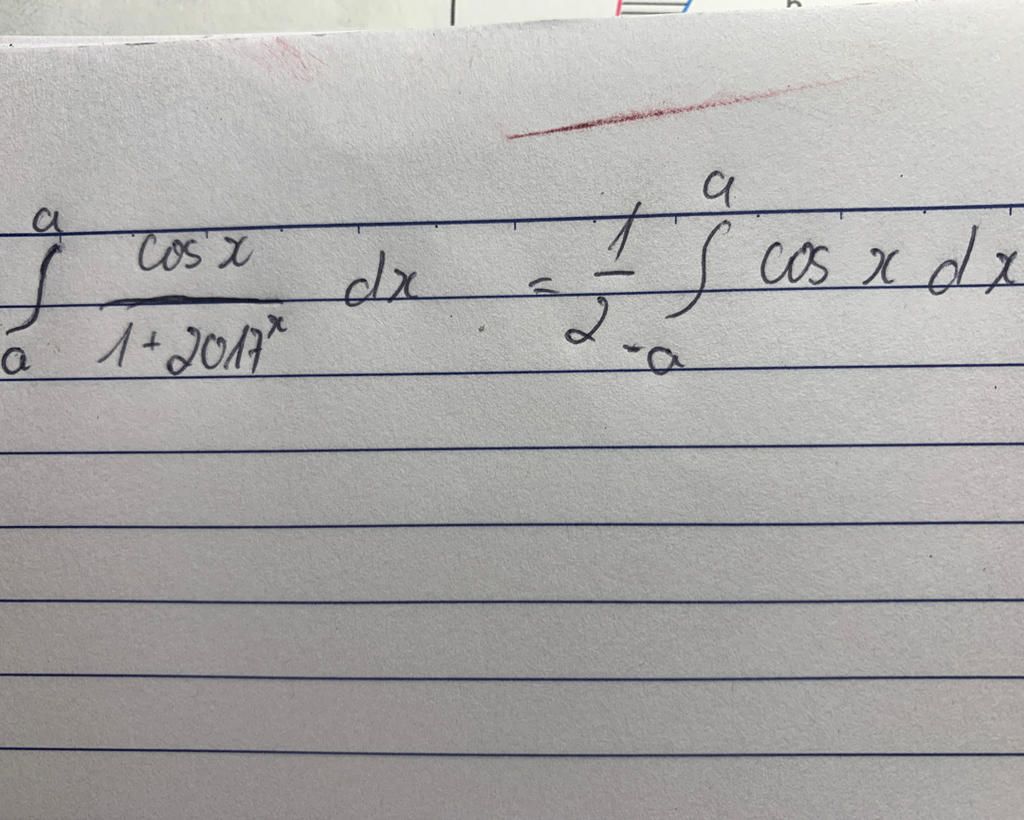 ∫ₐᵃ cos x / (1 + 2017ˣ) dx = 1/2 ∫₋ₐᵃ cos x dx